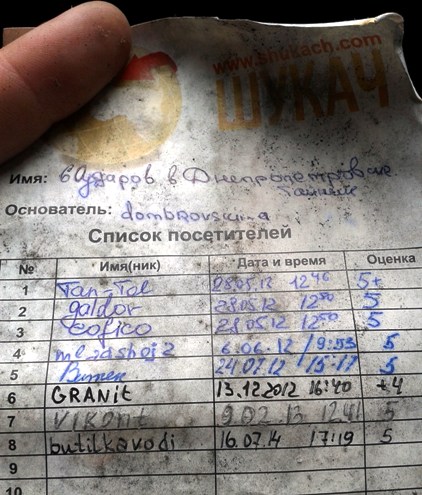 www.shukach.com
ШУКАЧ
Имя: 6 Ударов в Днепропетровске
Основатель:
Список посетителей
№ Имя(ник) Дата и время Оценка
1 Tan-Tol 28.05.12 12 40 5+
2 galdor 28.05.12 12 50 5
3 cofico 28.05.12 12 50 5
4 6.06.12 19:53 5
5 24.07.12 15-17 5
6 GRANit 13.12.2012 16:40 +4
7 VIKONT 9.02.13 12.41 5
8 butilkavodi 16.07.14 17:19 5
9
10